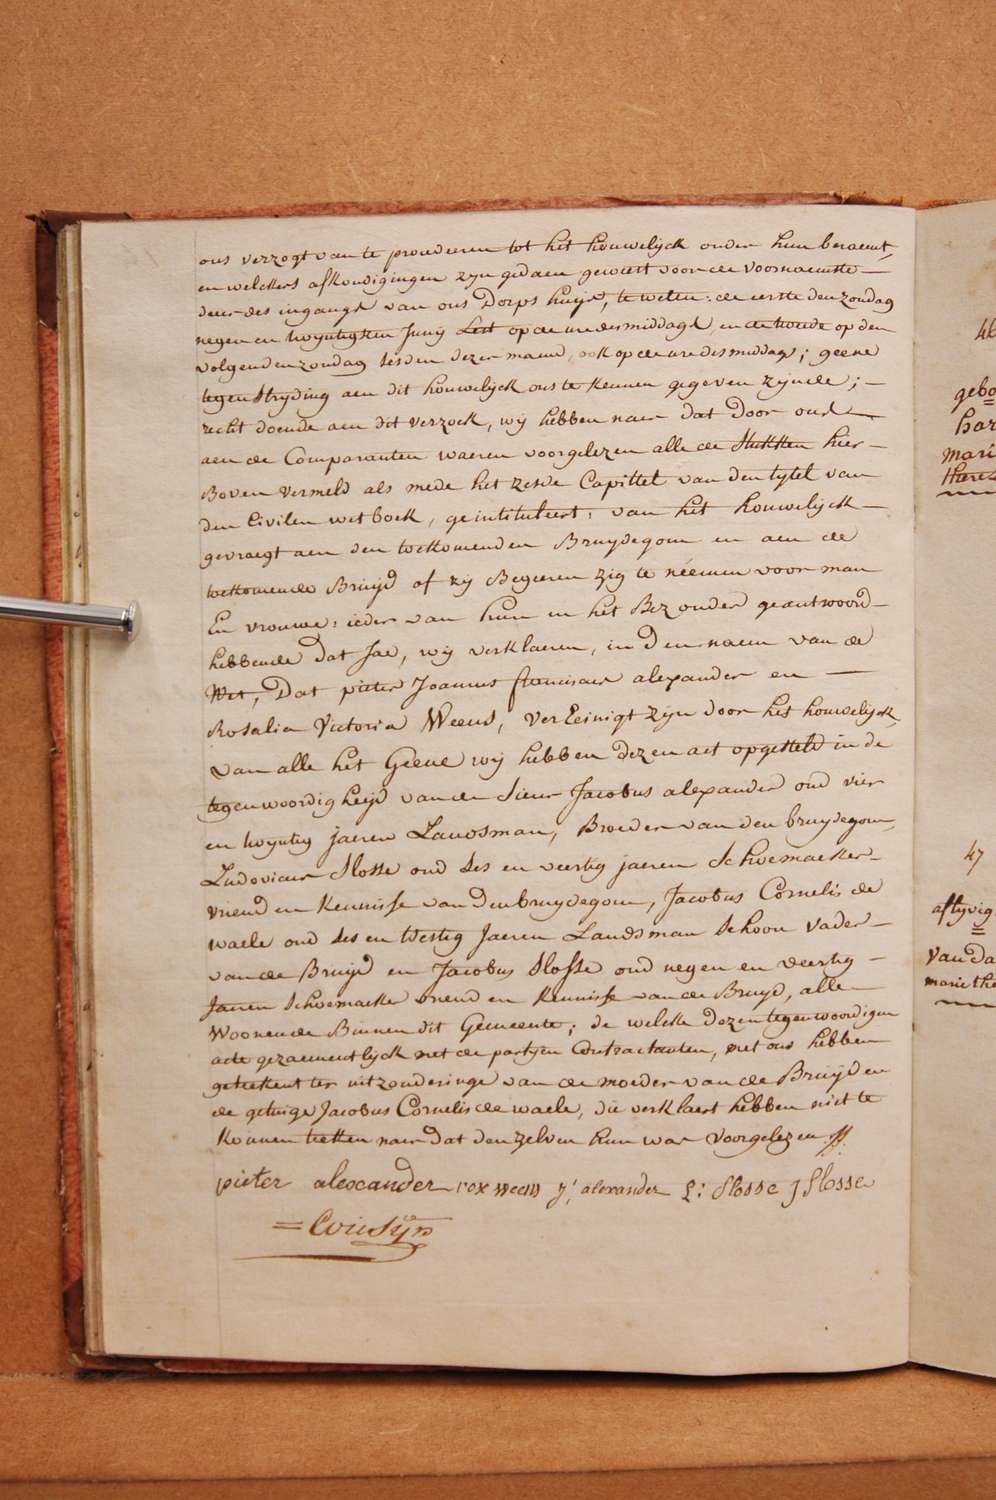 ons verzogt van te proudeeren tot het houwelijck onder hun beraemt,
en welckers afkondigingen zijn gedaen geweest voor de voornaemste
deur des ingangs van ons Dorps huijs, te weten: de eerste den zondag
negen en twyntigsten Junij Lest op de ure des middags, en de tweede op den
volgenden zondag sesden dezer maend, ook op de ure des middags; geene
tegenstryding aen dit houwelijck ons te kennen gegeven zijnde;
recht doende aen dit verzoek, wij hebben naer dat door ons
aen de Comparanten waeren voorgelezen alle de stukken hier
Boven vermeld als mede het zesde Capittel van den tytel van
den Civilen wetboek, geintituleert: van het houwelijck
gevraegt aen den toekomenden Bruydegom en aen de
toekomende Bruijd of zij Begeeren zig te neemen voor man
En vrouwe: ieder van hun in het Bezonder geantwoord
hebbende dat Jae, wij verklaeren, in den naem van de
Wet, Dat pieter Joannes franciscus alexander en
Rosalia Victoria Weens, verEeinigt zijn door het houwelijck,
van alle het Geene wij hebben dezen act opgesteld in de
tegenwoordigheijd van de sieur Jacobus alexander oud vier
en twyntig jaeren Landsman, Broeder van den bruydegom,
Ludovicus Slosse oud ses en veertig jaeren Schoemaeker
vriend en kennisse van den bruydegom, Jacobus Cornelis de
waele oud ses en tsestig Jaeren Landsman schoon vader
van de Bruijd en Jacobus Slosse oud negen en veertig
Jaeren Schoemaeker vriend en kennisse van de Bruyd, alle
Woonende Binnen dit Gemeente; de welcke dezen tegenwoordigen
acte gezaementlijck met de partyen Contractanten, met ons hebben
geteekent ter uitzonderinge van de moeder van de Bruijd en
de getuige Jacobus Cornelis de waele, die verklaert hebben niet te
konnen teeken naer dat den zelven hun was voorgelezen
pieter alexcander rox weens j: alexander L: Slosse J Slosse
= Cousijn
46
gebo
har
mari
theres
47
aflyvig
van da
marie the